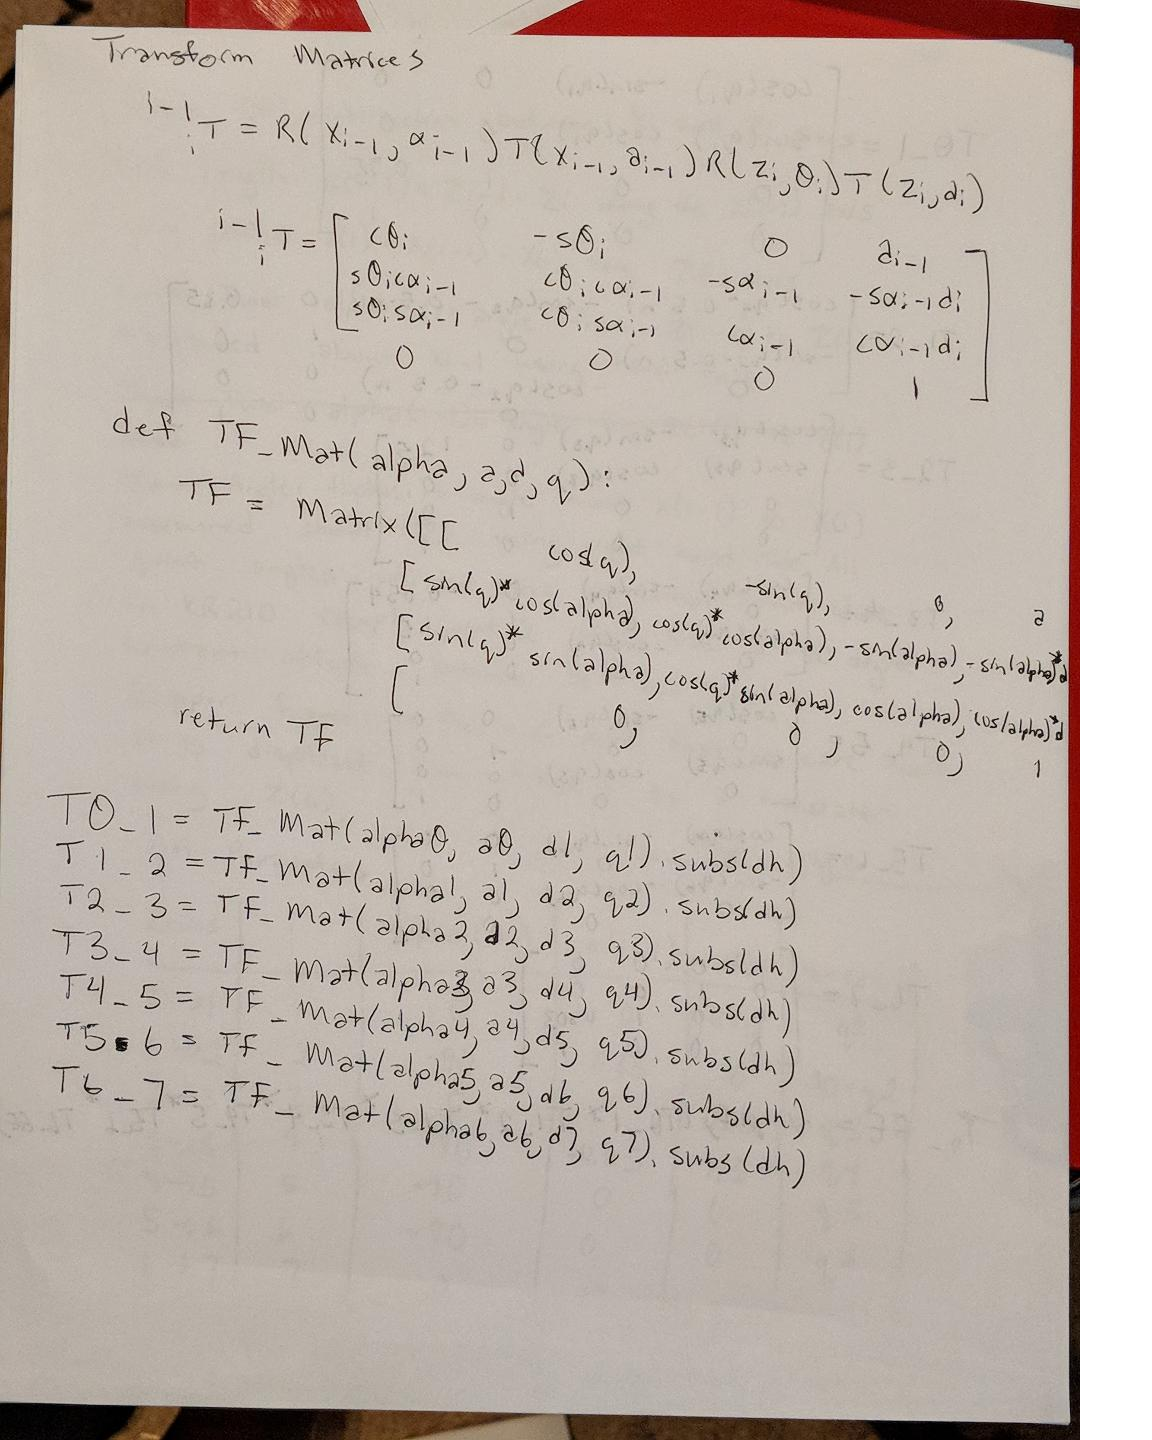 Transform Matrices
i-1 i T = R(xi-1, αi-1) T(xi-1, ai-1) R(zi, θi) T(zi, di)
i-1 i T = [ cθi -sθi 0 ai-1
sθicαi-1 cθicαi-1 -sαi-1 -sαi-1di
sθisαi-1 cθisαi-1 cαi-1 cαi-1di
0 0 0 1 ]
def TF_Mat(alpha, a, d, q):
TF = Matrix([[ cos(q), -sin(q), 0, a
[sin(q)*cos(alpha), cos(q)*cos(alpha), -sin(alpha), -sin(alpha)*d
[sin(q)*sin(alpha), cos(q)*sin(alpha), cos(alpha), cos(alpha)*d
[ 0, 0, 0, 1
return TF
T0_1 = TF_Mat(alpha0, a0, d1, q1).subs(dh)
T1_2 = TF_Mat(alpha1, a1, d2, q2).subs(dh)
T2_3 = TF_Mat(alpha2, a2, d3, q3).subs(dh)
T3_4 = TF_Mat(alpha3, a3, d4, q4).subs(dh)
T4_5 = TF_Mat(alpha4, a4, d5, q5).subs(dh)
T5_6 = TF_Mat(alpha5, a5, d6, q6).subs(dh)
T6_7 = TF_Mat(alpha6, a6, d7, q7).subs(dh)